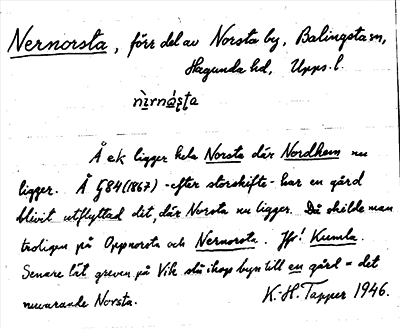 Nernorsta, förr del av Norsta by, Balingsta sn,
Hagunda hd, Upps. l.
nìrnáṣṭa
Å ek ligger hela Norsta där Nordhem nu
ligger. Å G84 (1867) - efter storskifte - har en gård
blivit utflyttad dit, där Norsta nu ligger. Då skilde man
troligen på Oppnorsta och Nernorsta. Jfr! Kumla.
Senare lät greven på Vik slå ihop byn till en gård = det
nuvarande Norsta.
K.-H. Tapper 1946.